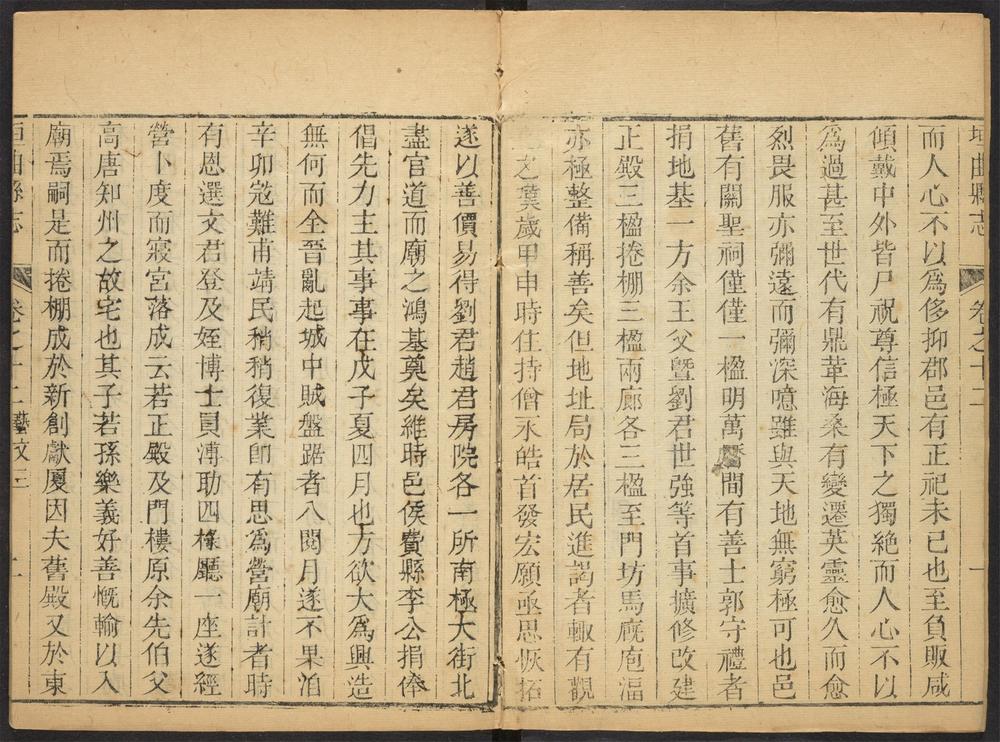 垣曲縣志
卷之十二
一
而人心不以爲侈抑郡邑有正祀未已也至負販咸
傾戴中外皆尸祝尊信極天下之獨絶而人心不以
爲過甚至世代有鼎革海桑有變遷英靈愈久而愈
烈畏服亦彌遠而彌深噫雖與天地無窮極可也邑
舊有關聖祠僅僅一楹明萬曆間有善士郭守禮者
捐地基一方余王父暨劉君世強等首事擴修改建
正殿三楹捲棚三楹兩廊各三楹至門坊馬廐庖湢
亦極整備稱善矣但地址局於居民進謁者輙有觀
之歎歲甲申時住持僧永皓首發宏願亟思恢拓
遂以善價易得劉君趙君房院各一所南極大街北
盡官道而廟之鴻基奠矣維時邑侯費縣李公捐俸
倡先力主其事事在戊子夏四月也方欲大爲興造
無何而全晉亂起城中賊盤踞者八閱月遂不果洎
辛卯宼難甫靖民稍稍復業卽有思爲營廟計者時
有恩選文君登及姪博士員溥助四椽廳一座遂經
營卜度而寢宮落成云若正殿及門樓原余先伯父
高唐知州之故宅也其子若孫樂義好善慨輸以入
廟焉嗣是而捲棚成於新創獻厦因夫舊殿又於東
垣曲縣志
卷之十二藝文三
二